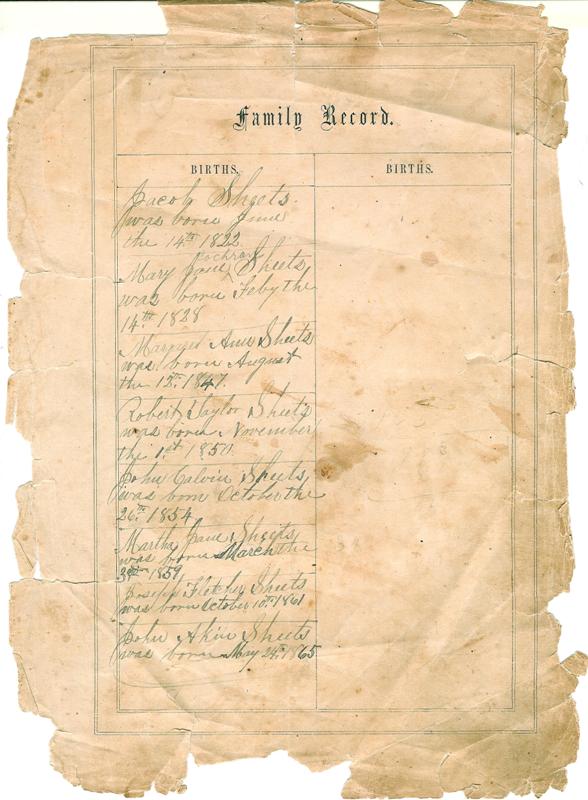 Family Record.
BIRTHS.
BIRTHS.
Jacob Sheets.
was born June
the 14th 1822
Cochran
Mary Jane Sheets,
was born Feby the
14th 1828
Margret Ann Sheets
was born August
the 13th 1847.
Robert Taylor Sheets
was born November
the 1st 1850
John Calvin Sheets,
was born October the
26th 1854
Martha Jane Sheets
was born March the
1859
Joseph Fletcher Sheets
was born October 10th 1861
John Akin Sheets
was born May 24th 1865